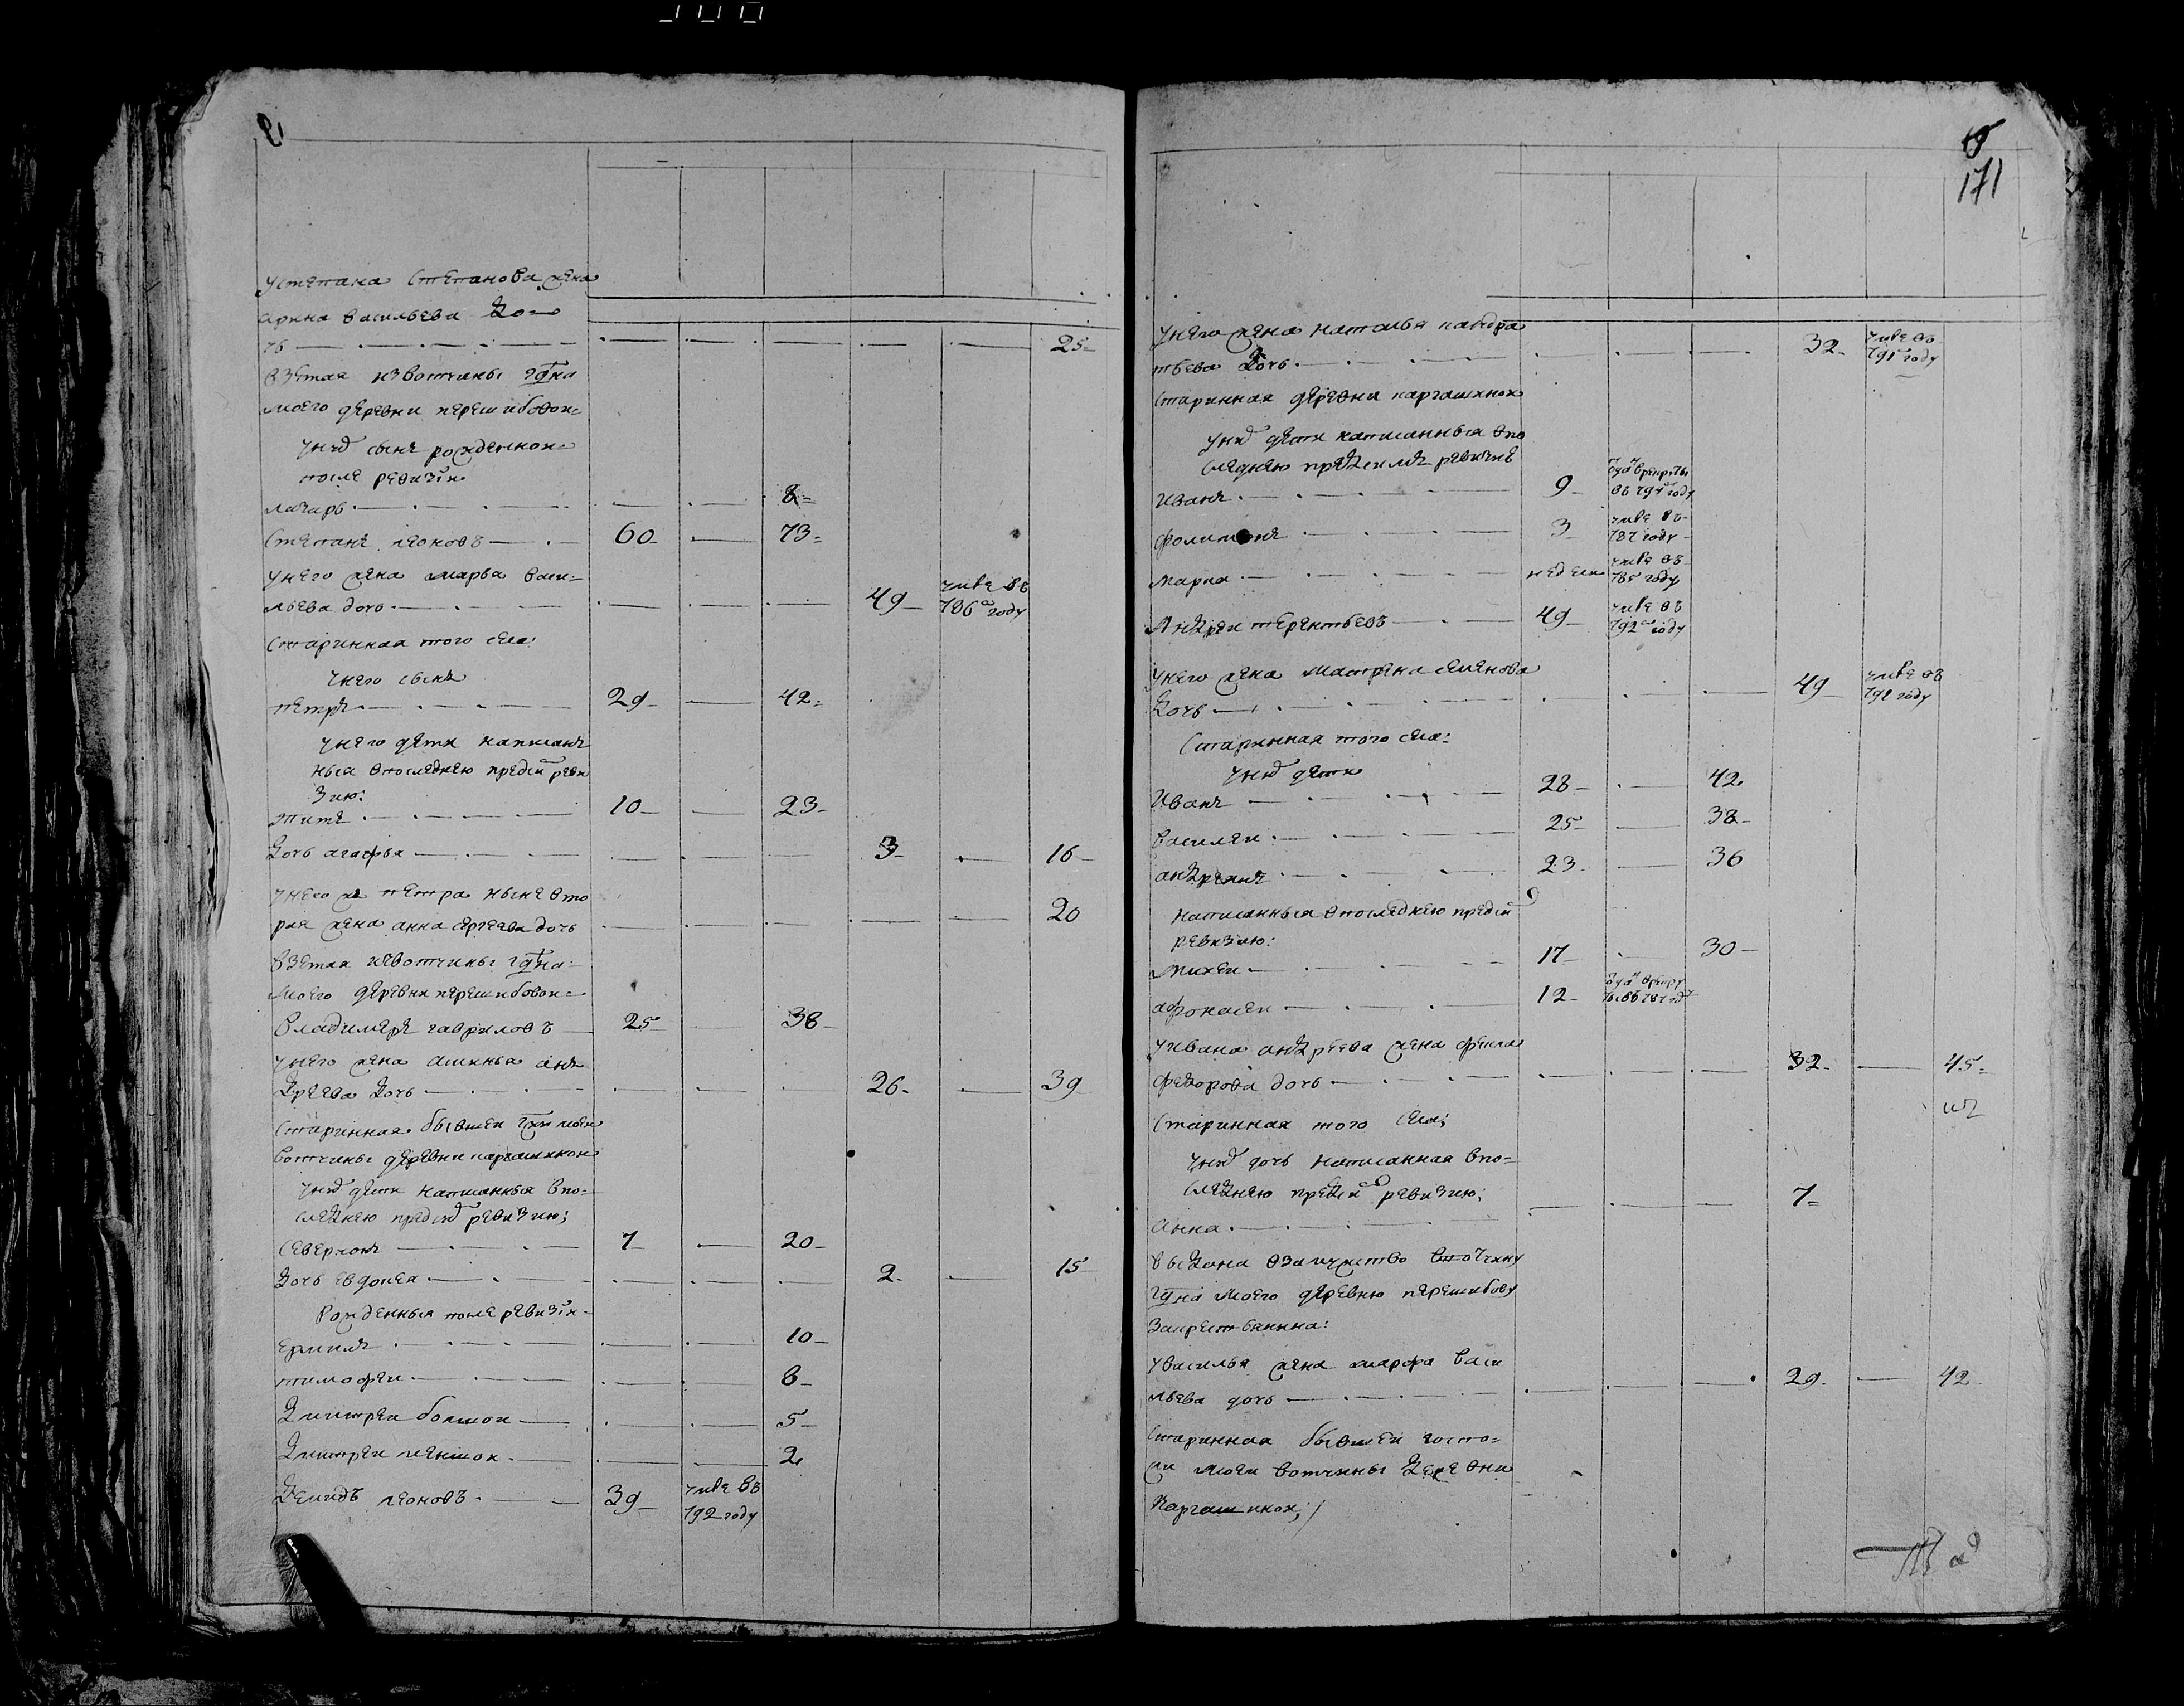 171
устепана степанова жена
арина васильева до
чь 25
взятая извотчины гдна
моего деревни перешибовои
унид сынъ рожденнои
после ревизiи
лазарь 8
степанъ леоновъ 60 73
унего жена марва васи
льева дочь 49 умре въ 786 году
старинная того села
унего сынъ
петръ 29 42
унего дети написан
ныя впоследнею предси реви
зию:
титъ 10 23
дочь агафья 3 16
унего же петра ныне вто
рая жена анна сергеева дочь 20
взятая извотчины гдна
моего деревни перешибовои
владимеръ гавриловъ 25 38
унего жена аксинья ан
дреева дочь 26 39
старинная бывшеи гжи моеи
вотчины деревни каргашинои
унид дети написанныя впо
следнею предси ревизию;
северьянъ 7 20
дочь евдокея 2 15
рожденныя после ревизiи
ермилъ 10
тимофеи 8
дмитреи болшои 5
дмитреи меншои 2
демидъ леоновъ 39 умре въ 792 году
унего жена наталья кандра 32 умре во 791 году
тьева дочь
старинная деревни каргашинои
унид дети написанныя впо
следнею предсимъ ревизие
иванъ 9 въ 794 году
филимонъ 3 умре въ 787 году
марка недели умре въ 785 году
андреи терентьевъ 49 умре въ 792 году
унего жена матрена семенова
дочь 49 умре въ 792 году
старинная того села:
унид дети
иванъ 28 42
василеи 25 38
андреянъ 23 36
написанныя впоследнею предси
ревизию:
михеи 17 30
афонасеи 12
уивана андреева жена фекла
федорова дочь 32 45
старинная того села;
унид дочь написанная впо
следнею предси ревизию;
анна 7
выдана взамужство вотчину
гдна моего деревню перешибову
закрестьянина:
увасилья жена марфа васи
льева дочь 29 42
старинная бывшеи госпо
жи моеи вотчины деревни
каргашинои;